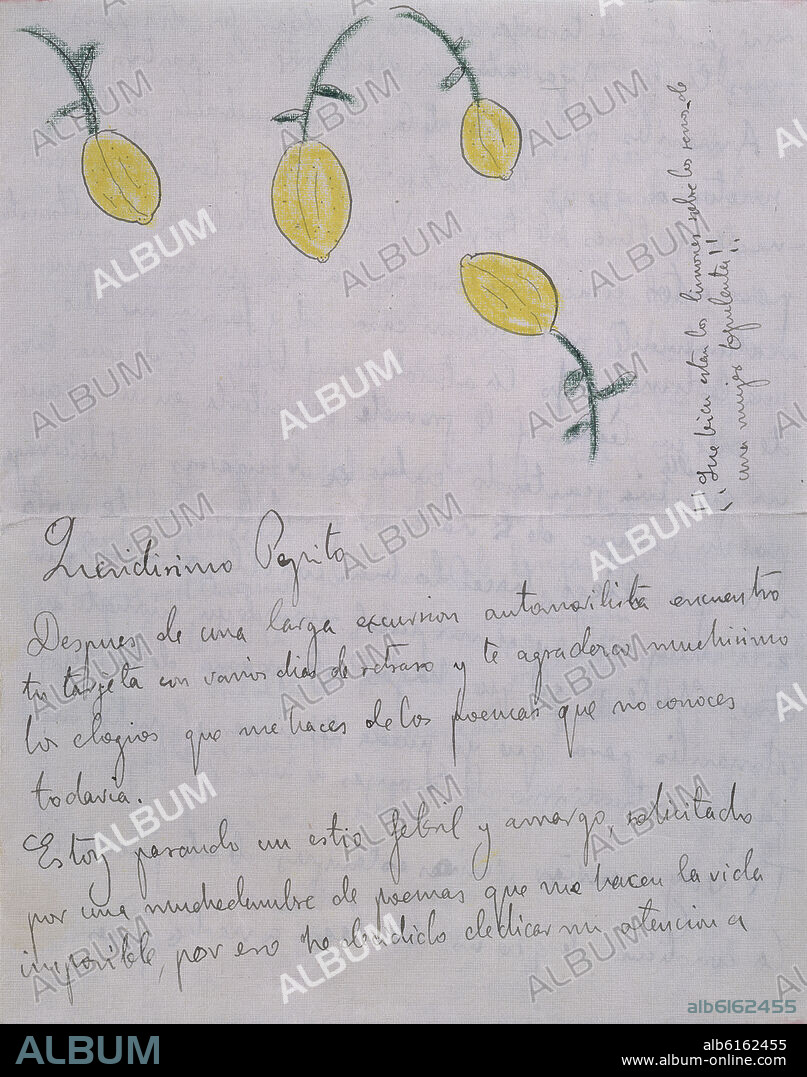 ¡¡Que bien están los limones sobre los senos de
una mujer opulenta!!
Queridisimo Pepito
Despues de una larga excursion automovilista encuentro
tu targeta con varios dias de retraso y te agradezco muchisimo
los elogios que me haces de los poemas que no conoces
todavia.
Estoy pasando un estio febril y amargo, solicitado
por una muchedumbre de poemas que me hacen la vida
imposible, por eso he podido dedicar mi atencion a
alb6162455
ALBUM
alb6162455
www.album-online.com